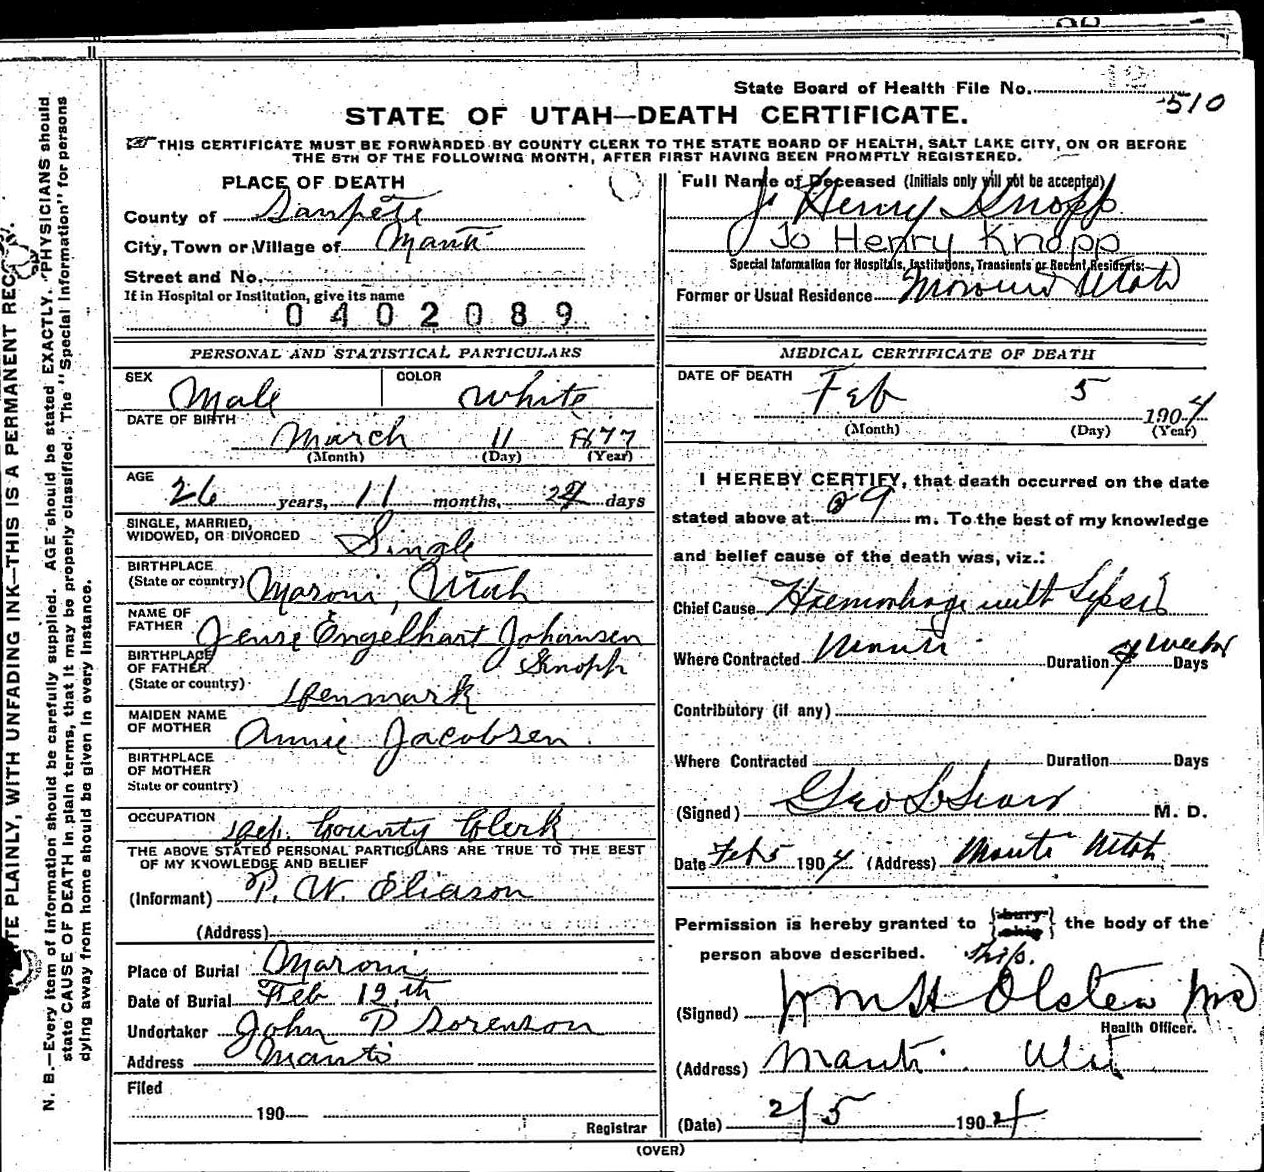 State Board of Health File No. 12
510
STATE OF UTAH—DEATH CERTIFICATE.
THIS CERTIFICATE MUST BE FORWARDED BY COUNTY CLERK TO THE STATE BOARD OF HEALTH, SALT LAKE CITY, ON OR BEFORE
THE 5TH OF THE FOLLOWING MONTH, AFTER FIRST HAVING BEEN PROMPTLY REGISTERED.
PLACE OF DEATH
County of Sanpete
City, Town or Village of Manti
Street and No.
If in Hospital or Institution, give its name
0402089
PERSONAL AND STATISTICAL PARTICULARS
SEX Male COLOR White
DATE OF BIRTH
March 11 1877
(Month) (Day) (Year)
AGE 26 years, 11 months, 24 days
SINGLE, MARRIED,
WIDOWED, OR DIVORCED Single
BIRTHPLACE
(State or country) Maroni, Utah
NAME OF
FATHER Jense Engelhart Johansen
Knopp
BIRTHPLACE
OF FATHER
(State or country) Denmark
MAIDEN NAME
OF MOTHER Annie Jacobsen
BIRTHPLACE
OF MOTHER
State or country)
OCCUPATION Dep. County Clerk
THE ABOVE STATED PERSONAL PARTICULARS ARE TRUE TO THE BEST
OF MY KNOWLEDGE AND BELIEF
(Informant) P. W. Eliason
(Address)
Place of Burial Maroni
Date of Burial Feb 12th
Undertaker John P Sorenson
Address Manti
Filed
190
Registrar
Full Name of Deceased (Initials only will not be accepted)
Jo Henry Knopp
Jo Henry Knopp
Special Information for Hospitals, Institutions, Transients or Recent Residents:
Former or Usual Residence Moroni Utah
MEDICAL CERTIFICATE OF DEATH
DATE OF DEATH Feb 5 1904
(Month) (Day) (Year)
I HEREBY CERTIFY, that death occurred on the date
stated above at 9 m. To the best of my knowledge
and belief cause of the death was, viz.:
Chief Cause Haemorhage with Sepsis
Where Contracted Manti Duration 4 weeks Days
Contributory (if any)
Where Contracted Duration Days
(Signed) Geo L Sears M. D.
Date Feb 5 1904 (Address) Manti Utah
Permission is hereby granted to {bury ship} the body of the
person above described. Ship.
(Signed) Wm H Olsten MD
Health Officer.
(Address) Manti Utah
(Date) 2/5 1904
(OVER)
N. B.—Every item of information should be carefully supplied. AGE should be stated EXACTLY. PHYSICIANS should
state CAUSE OF DEATH in plain terms, that it may be properly classified. The "Special Information" for persons
dying away from home should be given in every instance.
TE PLAINLY, WITH UNFADING INK—THIS IS A PERMANENT REC